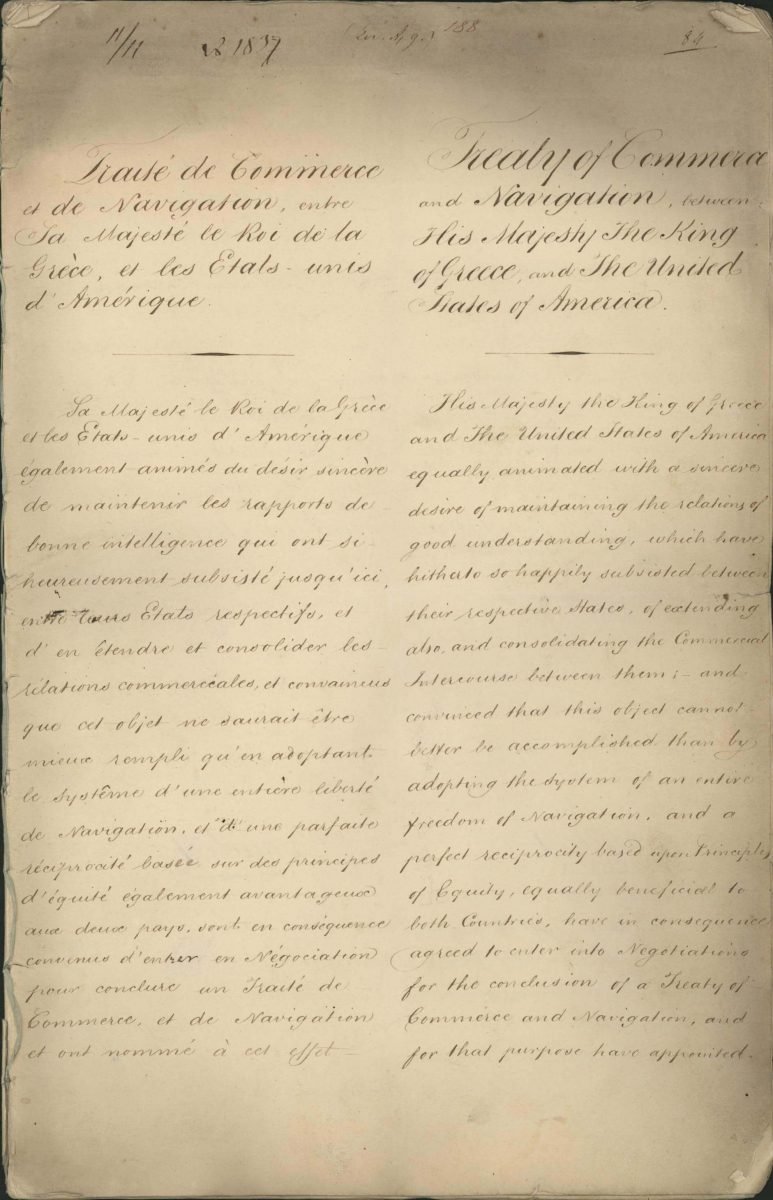 11/11
1837
188
84
Traité de Commerce
et de Navigation, entre
Sa Majesté le Roi de la
Grèce, et les États-unis
d'Amérique.
Sa Majesté le Roi de la Grèce
et les États-unis d'Amérique
également animés du désir sincère
de maintenir les rapports de
bonne intelligence qui ont si
heureusement subsisté jusqu'ici,
entre leurs États respectifs, et
d'en étendre et consolider les
rélations commerceales, et convaincus
que cet objet ne saurait être
mieux rempli qu'en adoptant
le système d'une entière liberté
de Navigation, et d'une parfaite
réciprocité basée sur des principes
d'équité également avantageux
aux deux pays, sont en conséquence
convenus d'entrer en Négociation
pour conclure un Traité de
Commerce, et de Navigation
et ont nommé à cet effet
Treaty of Commerce
and Navigation, between
His Majesty The King
of Greece, and The United
States of America.
His Majesty the King of Greece
and The United States of America
equally animated with a sincere
desire of maintaining the relations of
good understanding, which have
hitherto so happily subsisted between
their respective States, of extending
also, and consolidating the Commercial
Intercourse between them; - and
convinced that this object cannot
better be accomplished than by
adopting the System of an entire
freedom of Navigation, and a
perfect reciprocity based upon Principles
of Equity, equally beneficial to
both Countries, have in consequence
agreed to enter into Negotiations
for the conclusion of a Treaty of
Commerce and Navigation, and
for that purpose have appointed.